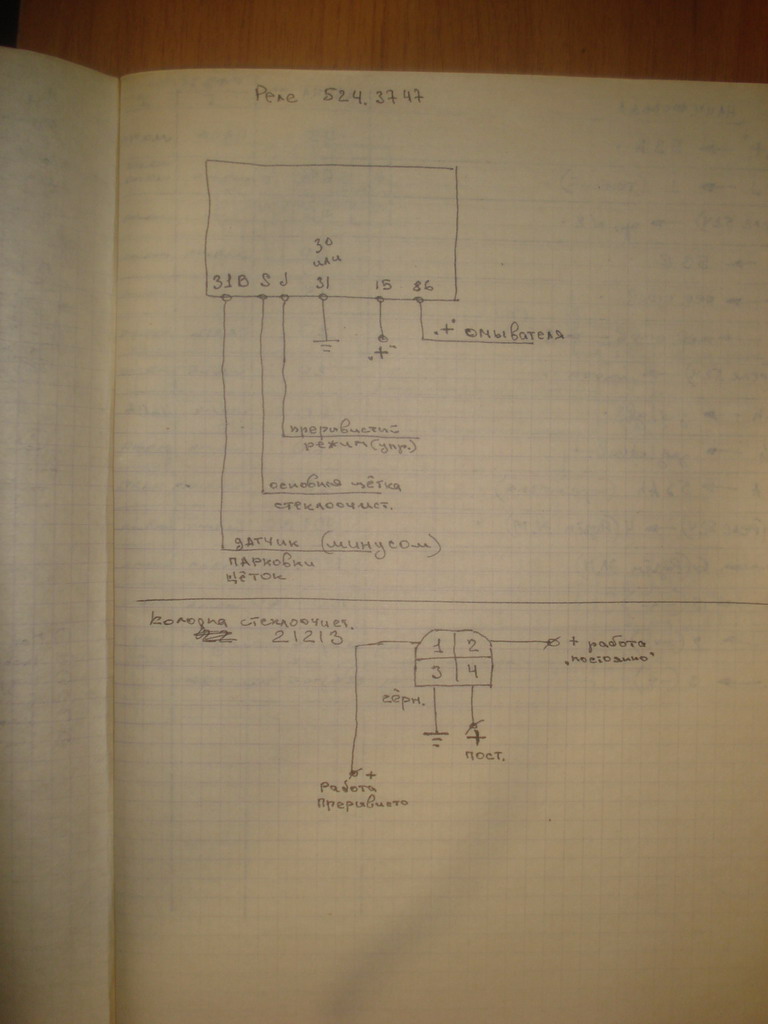 Реле 524.3747
30
или
31В S J 31 15 86
"+" омывателя
"+"
прерывистый
режим (упр.)
основная щётка
стеклоочист.
датчик (минусом)
парковки
щёток
Колодка стеклоочист.
21213
1 2
3 4
+ работа
"постоянно"
чёрн.
+
пост.
+
Работа
Прерывисто